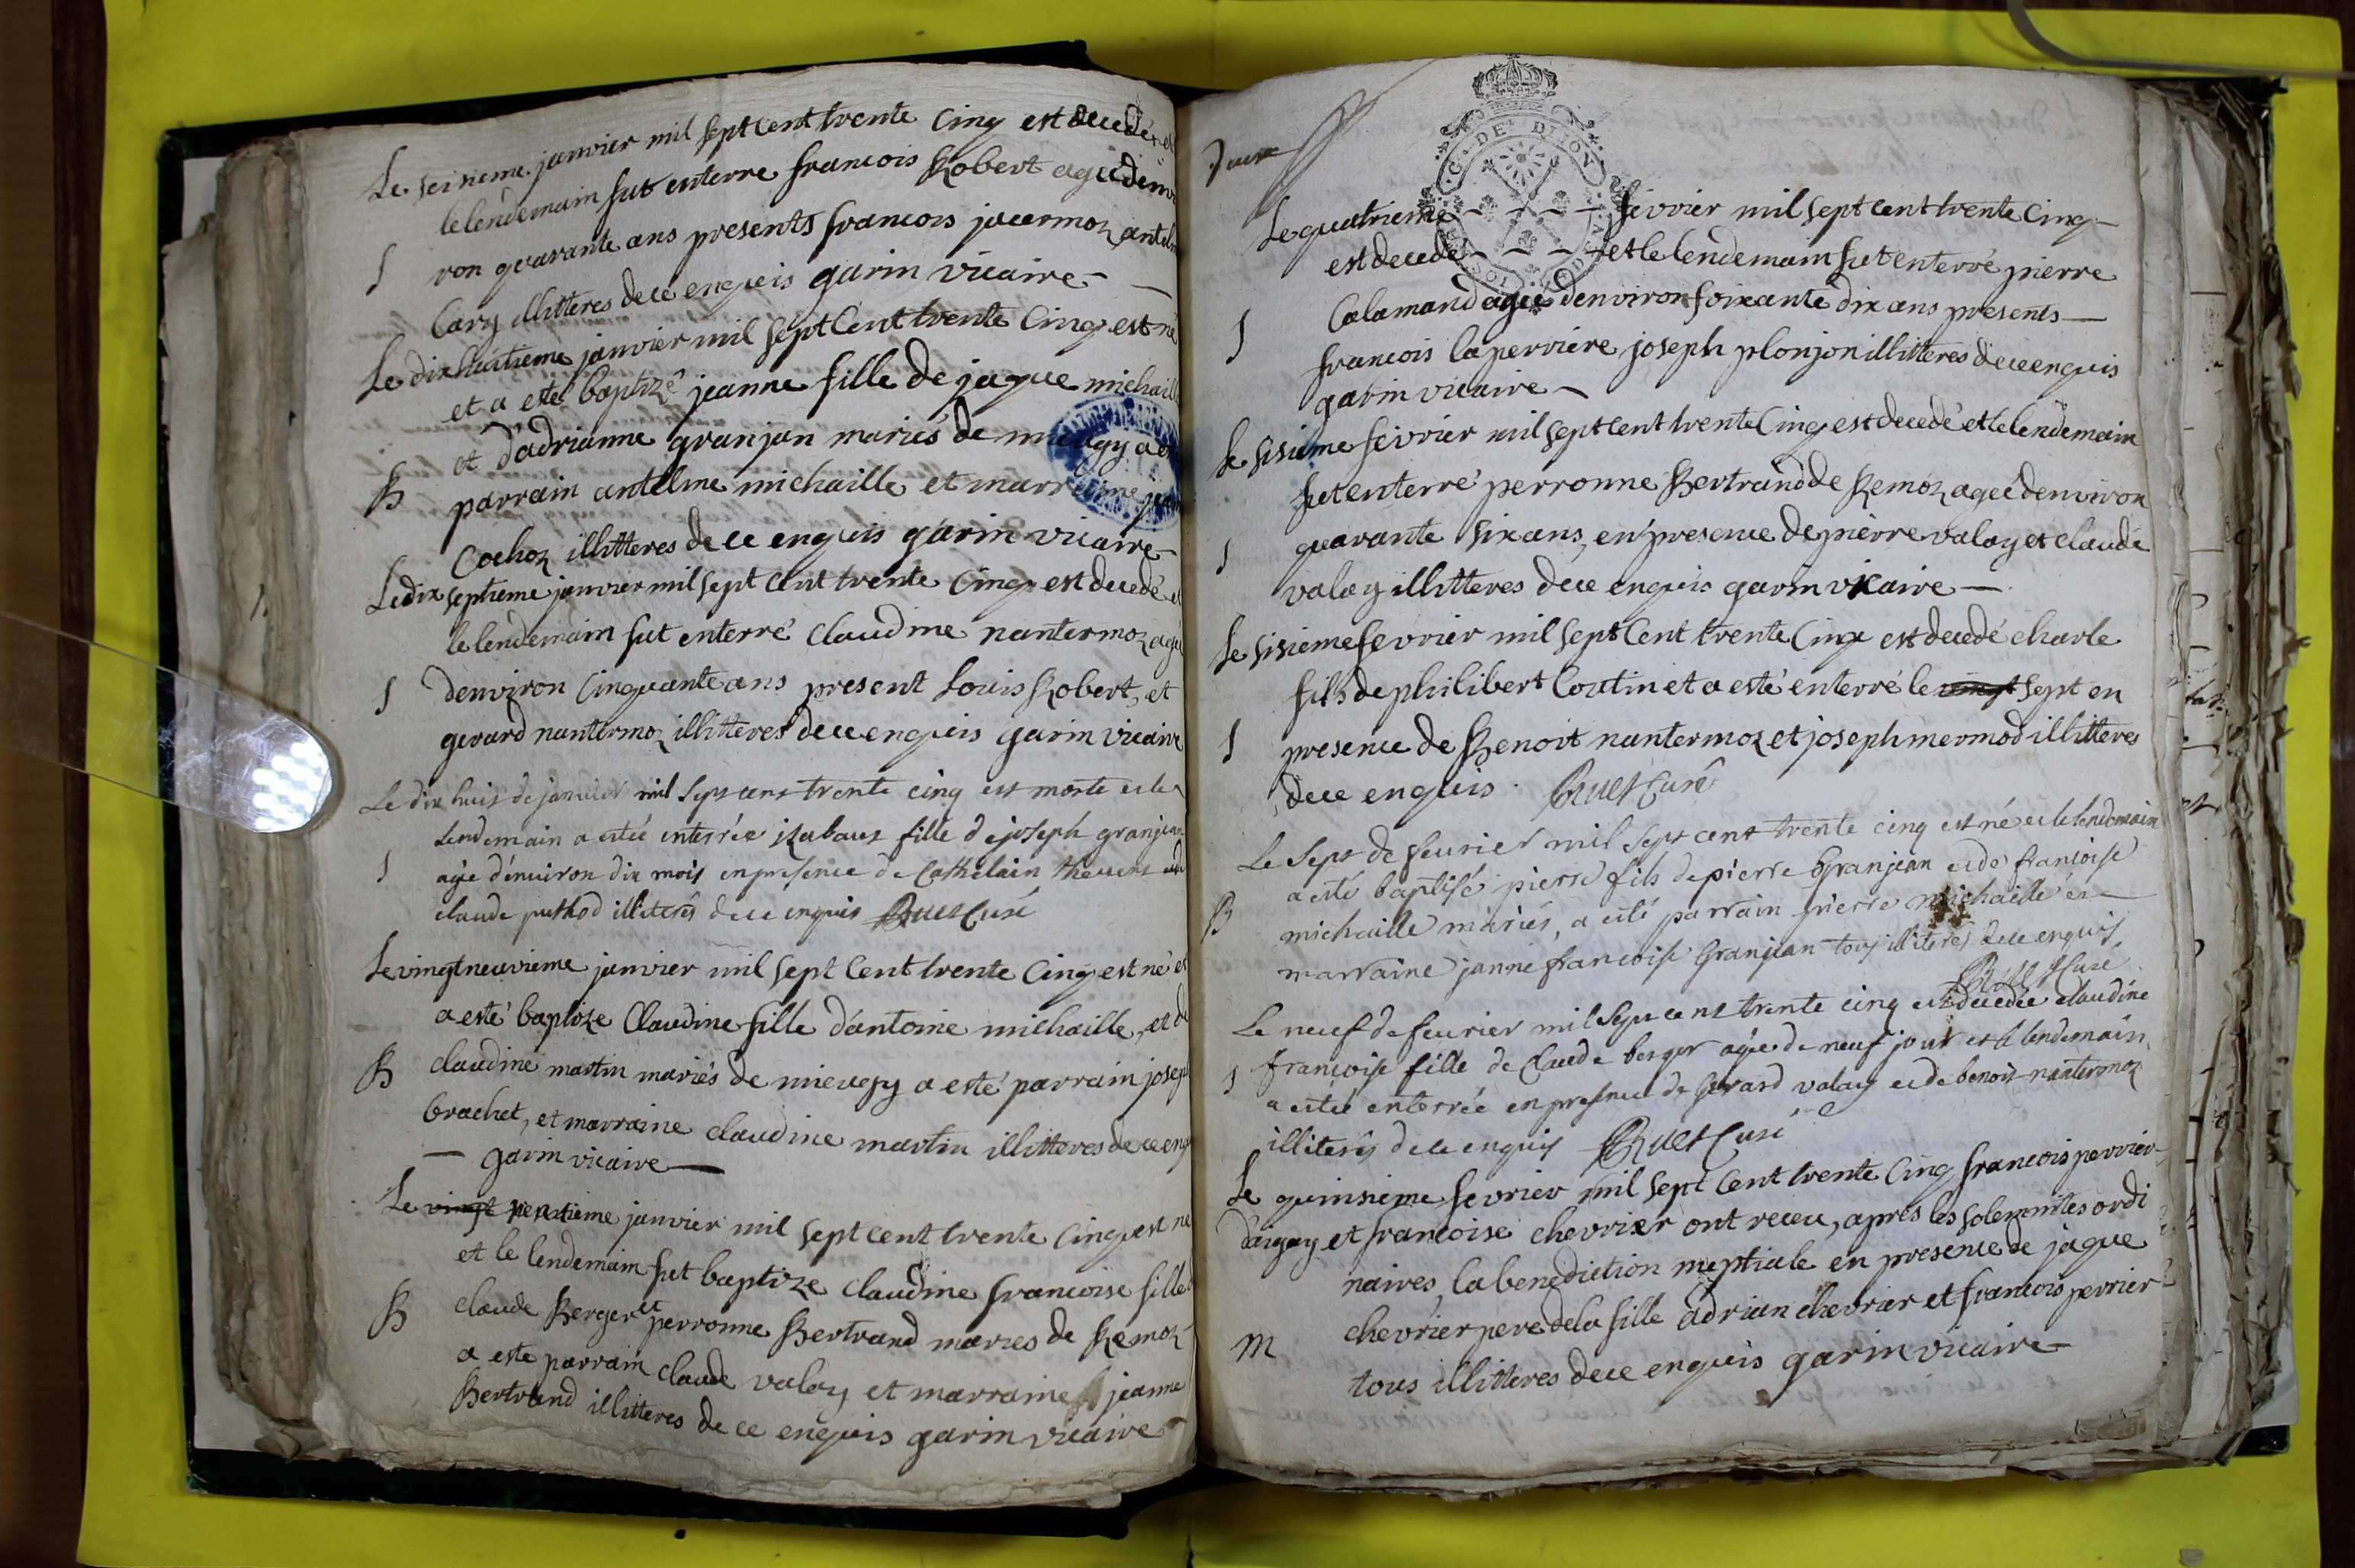 Le seisieme janvier mil sept cent trente cinq est decedé et
le lendemain fut enterre francois Robert agé denvi
S
ron quarante ans presents francois jacermoz antelm
Cary illitteres de ce enqueis garin vicaire
Le dixhuitieme janvier mil sept cent trente cinq est né
et a esté baptizé jeanne fille de jaque michaille
et d'adrianne granjan mariés de
B
parrain antelme michaille et marraine
Cochoz illitteres de ce enqueis garin vicaire
Le dix septieme janvier mil sept cent trente cinq est decedé et
le lendemain fut enterré claudine nantermoz agé
S
denviron cinquante ans present Louis Robert, et
gerard nantermoz illitteres de ce enqueis garin vicaire
Le dix huit de janvier mil sept cens trente cinq est morte et le
lendemain a estée enterrée izabaux fille de joseph granjean
S
agée d'environ dix mois en presence de Cathelain thevent
claude puthod illiterés de ce enquis Ruet Curé
Le vingt neuvieme janvier mil sept cent trente cinq est né et
a esté baptize Claudine fille d'antoine michaille, et de
B
claudine martin mariés de mieugy a esté parrain joseph
brachet, et marraine claudine martin illitteres de ce enq
garin vicaire
Le vingt trentieme janvier mil sept cent trente cinq est ne
et le lendemain fut baptize claudine francoise fille
B
claude Berger et perronne Bertrand maries de Remoz
a este parrain claude valoy et marraine jeanne
Bertrand illitteres de ce enqueis garin vicaire
G. DE DIJON
Le quatrieme fevrier mil sept cent trente cinq
est decedé et le lendemain fut enterré pierre
S
Calamand agée denviron soixante dix ans presents
francois laperviere joseph plonjon illitteres de ce enquis
garin vicaire
Le sisieme fevrier mil sept cent trente cinq est decedé et le lendemain
fut enterré perronne Bertrand de Remoz agée denviron
S
quarante six ans, en presence de pierre valoy et claude
valoy illitteres de ce enqueis garin vicaire
Le sisieme fevrier mil sept cent trente cinq est decedé charle
fils de philibert Coutin et a esté enterré le vingt sept en
S
presence de Benoit nantermoz et joseph mermod illitteres
de ce enqueis Ruet Curé
Le sept de feurier mil sept cens trente cinq est né et le lendemain
a esté baptisé pierre fils de pierre Granjean et de francoise
B
michaille mariés, a esté parrain pierre michaille et
marraine janne francoise Granjean tous illiterés de ce enquis
Ruet Curé
Le neuf de feurier mil sept cens trente cinq est decedée claudine
francoise fille de Claude berger agée de neuf jour et le lendemain
S
a estée enterrée en presence de Gerard valoy et de benoit nantermoz
illiterés de ce enquis Ruet Curé
Le quinsieme fevrier mil sept cent trente cinq francois perrier
d'argay et francoise chevrier ont receu, aprés les solemnites ordi
naires, la benediction nuptiale en presence de jaque
M
chevrier pere de la fille adrian chevrier et francois perrier
tous illitteres de ce enqueis garin vicaire